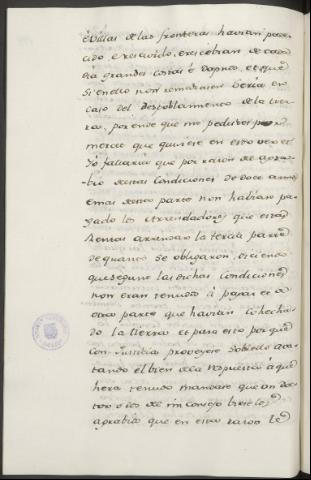 é Villas de las fronteras havian pade-
cido, e rescivido, e rescebian de cada
dia grandes cosas é dapnos, et que
Si en ello non remediasen seria en
caso del despoblamiento de la tier-
ra, por ende que me pedistes por
merced que quisiese en esto veer et
Yo fallaria que por razon de
destas condiciones de doce annos
é mas desta parte non habian pa-
gado los Arrendadores que estas
Rentas arrendaron la tercia parte
de quanto se obligaron, diciendo
que segund las dichas condiciones
non eran tenudos á pagar et de
otra parte que havian cohecha-
do la tierra et para esto por que
con justicia proveyese sobrello aca-
tando el bien de la republica á que
hera tenudo mandase que un doc-
tor o dos del mi Consejo
agrabio que en esta razon